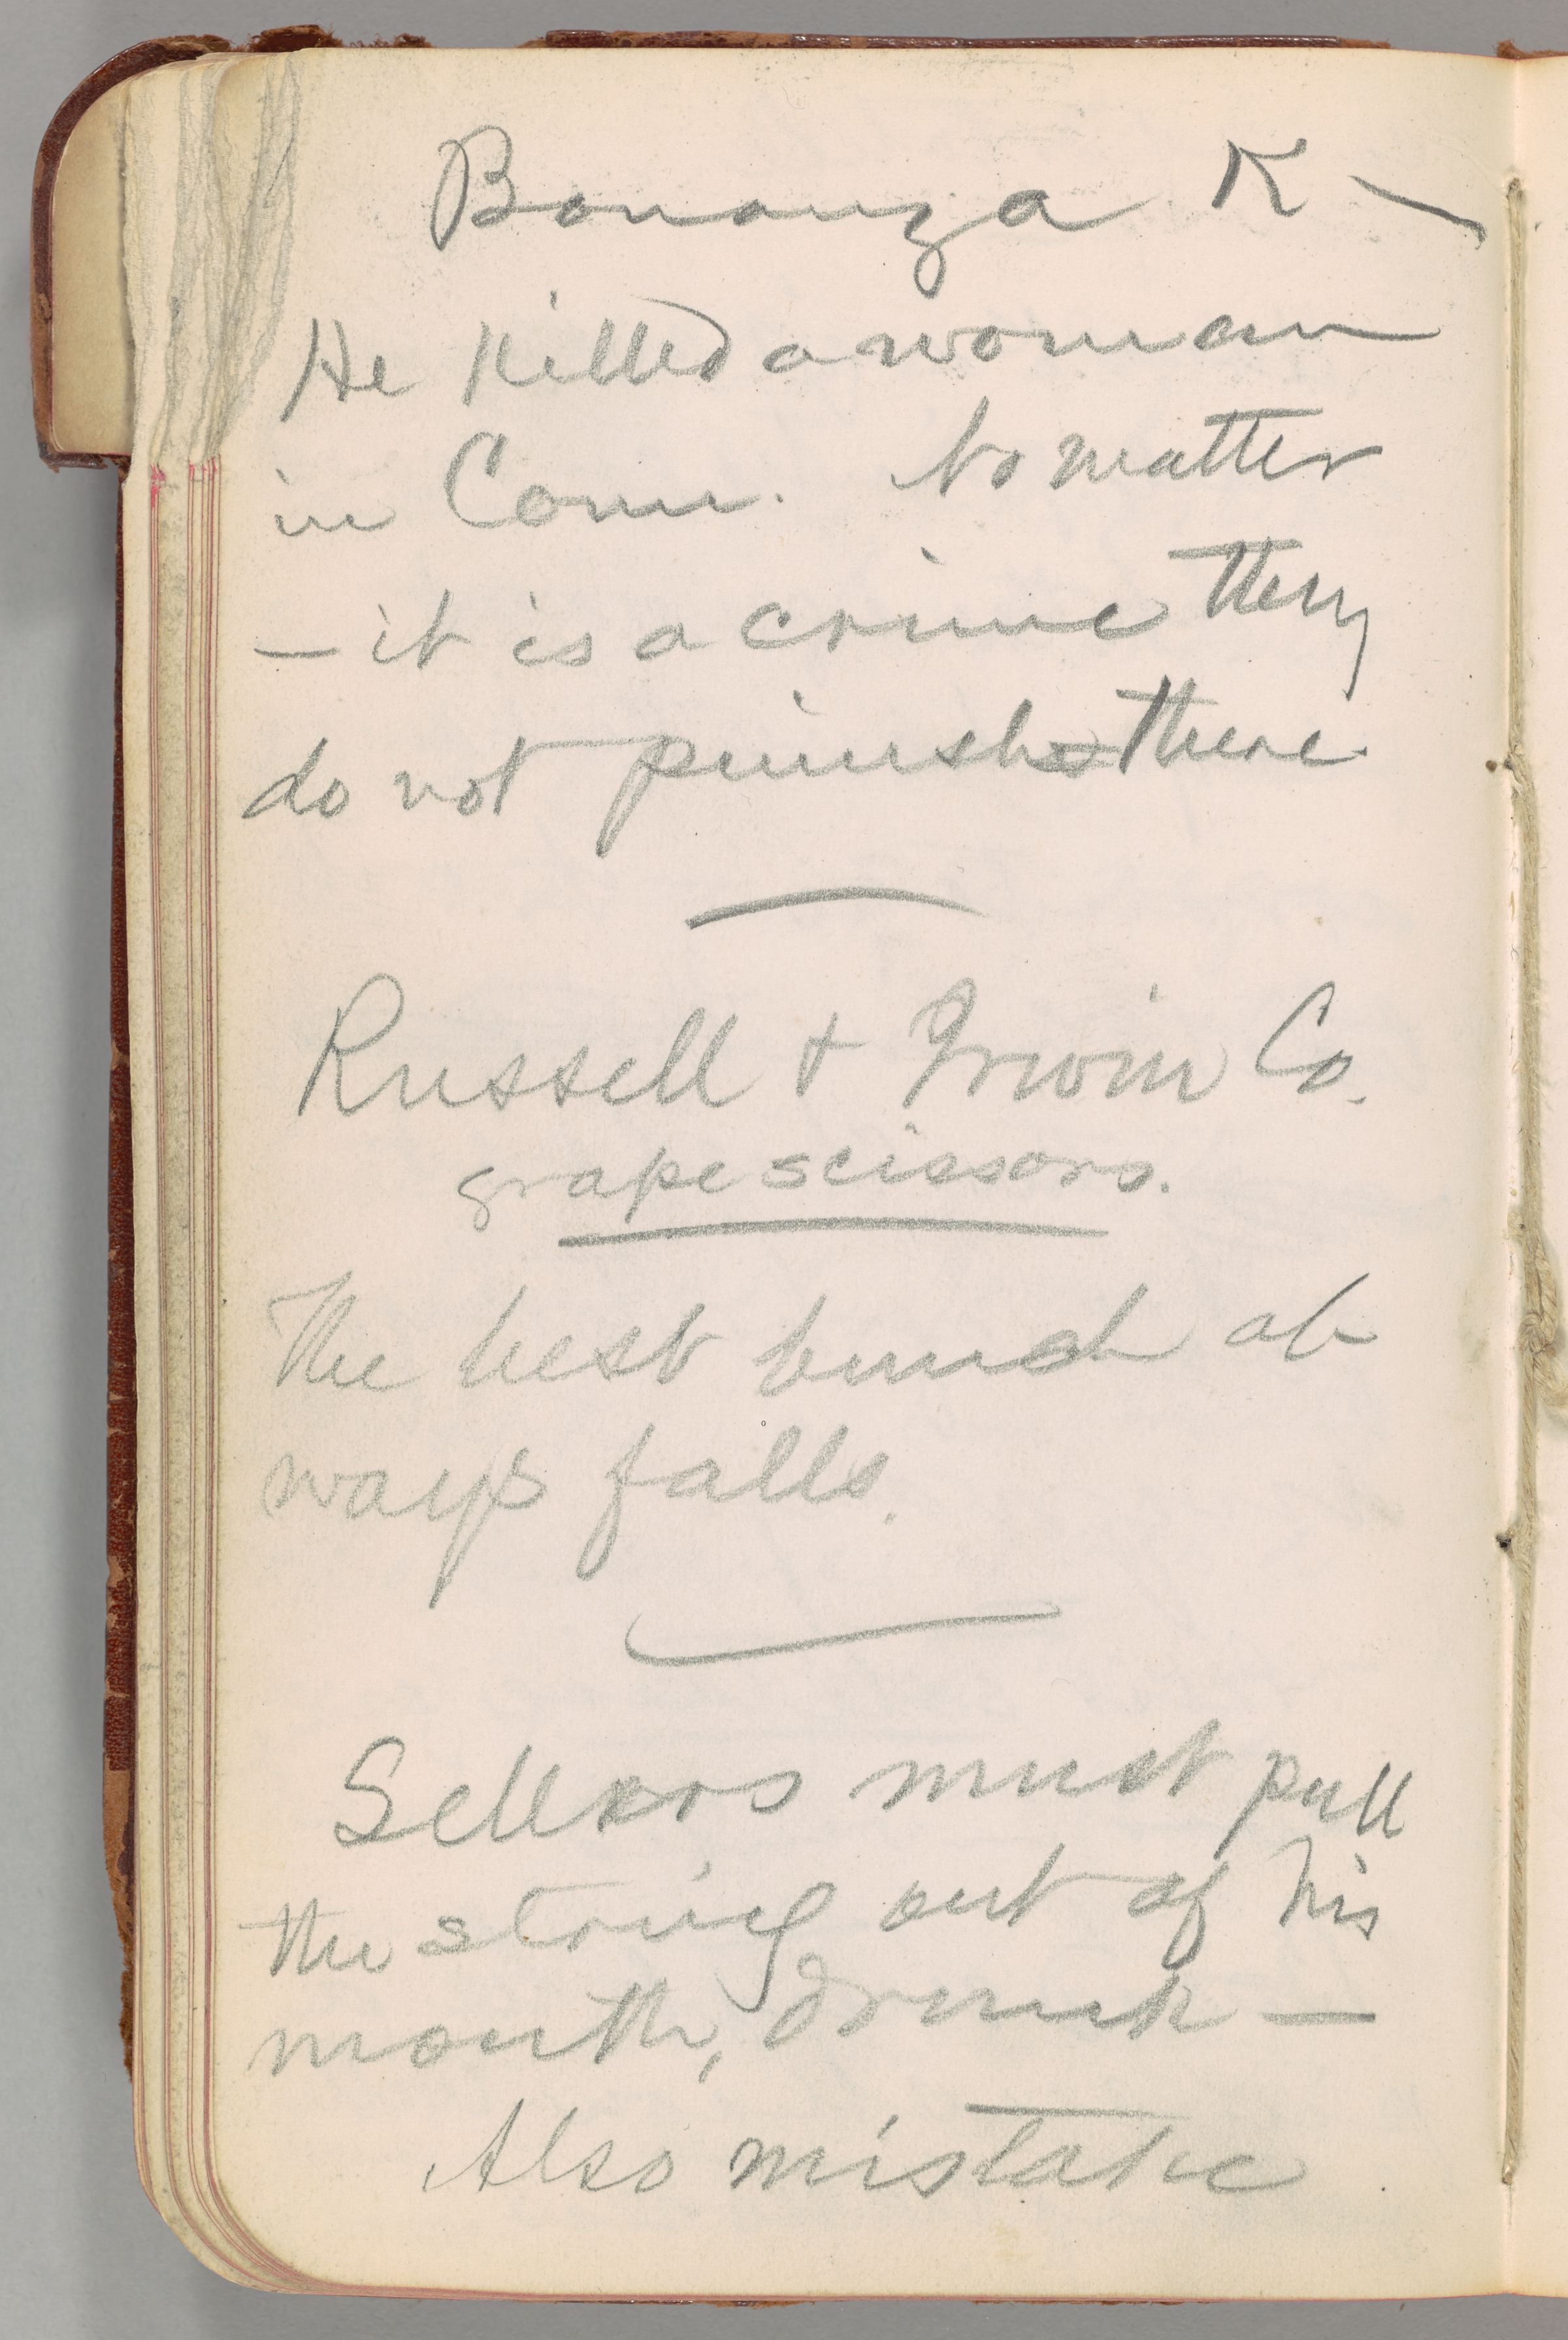 Bonanza K —
He killed a woman
in Conn. No matter
— it is a crime they
do not punish there
Russell + Irwin Co.
grape scissors.
The best bunch al-
ways falls.
Sellers must pull
the string out of his
mouth, drunk —
Also mistake